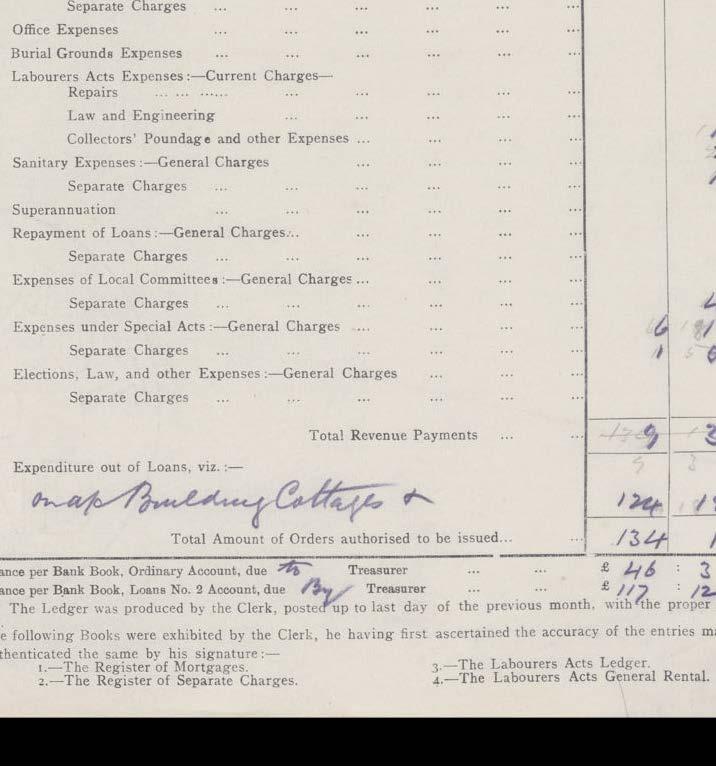 Separate Charges ... ... ... ... ... ...
Office Expenses ... ... ... ... ... ...
Burial Grounds Expenses ... ... ... ... ... ...
Labourers Acts Expenses:—Current Charges—
Repairs ... ... ...... ... ... ... ... ...
Law and Engineering ... ... ... ... ...
Collectors' Poundage and other Expenses ... ... ... ...
Sanitary Expenses:—General Charges ... ... ... ...
Separate Charges ... ... ... ... ... ...
Superannuation ... ... ... ... ... ...
Repayment of Loans:—General Charges... ... ... ... ...
Separate Charges ... ... ... ... ... ...
Expenses of Local Committees:—General Charges ... ... ... ...
Separate Charges ... ... ... ... ... ...
Expenses under Special Acts:—General Charges ... ... ... ... 6
Separate Charges ... ... ... ... ... ... 1
Elections, Law, and other Expenses:—General Charges ... ... ...
Separate Charges ... ... ... ... ... ...
Total Revenue Payments ... ... 9 3
9 3
Expenditure out of Loans, viz.:—
Building Cottages 124
Total Amount of Orders authorised to be issued... ... 134 1
ance per Bank Book, Ordinary Account, due to Treasurer ... ... £ 46 : 3
ance per Bank Book, Loans No. 2 Account, due By Treasurer ... ... £ 117 : 12
The Ledger was produced by the Clerk, posted up to last day of the previous month, with the proper
e following Books were exhibited by the Clerk, he having first ascertained the accuracy of the entries ma
thenticated the same by his signature:—
1.—The Register of Mortgages. 3.—The Labourers Acts Ledger.
2.—The Register of Separate Charges. 4.—The Labourers Acts General Rental.